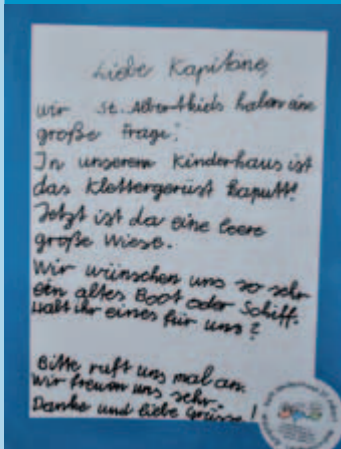 Liebe Kapitäne,
wir St. Albertkids haben eine
große Frage:
In unserem Kinderhaus ist
das Klettergerüst kaputt!
Jetzt ist da eine leere
große Wiese.
Wir wünschen uns so sehr
ein altes Boot oder Schiff.
Habt ihr eines für uns?
Bitte ruft uns mal an.
Wir freuen uns sehr.
Danke und liebe Grüsse!